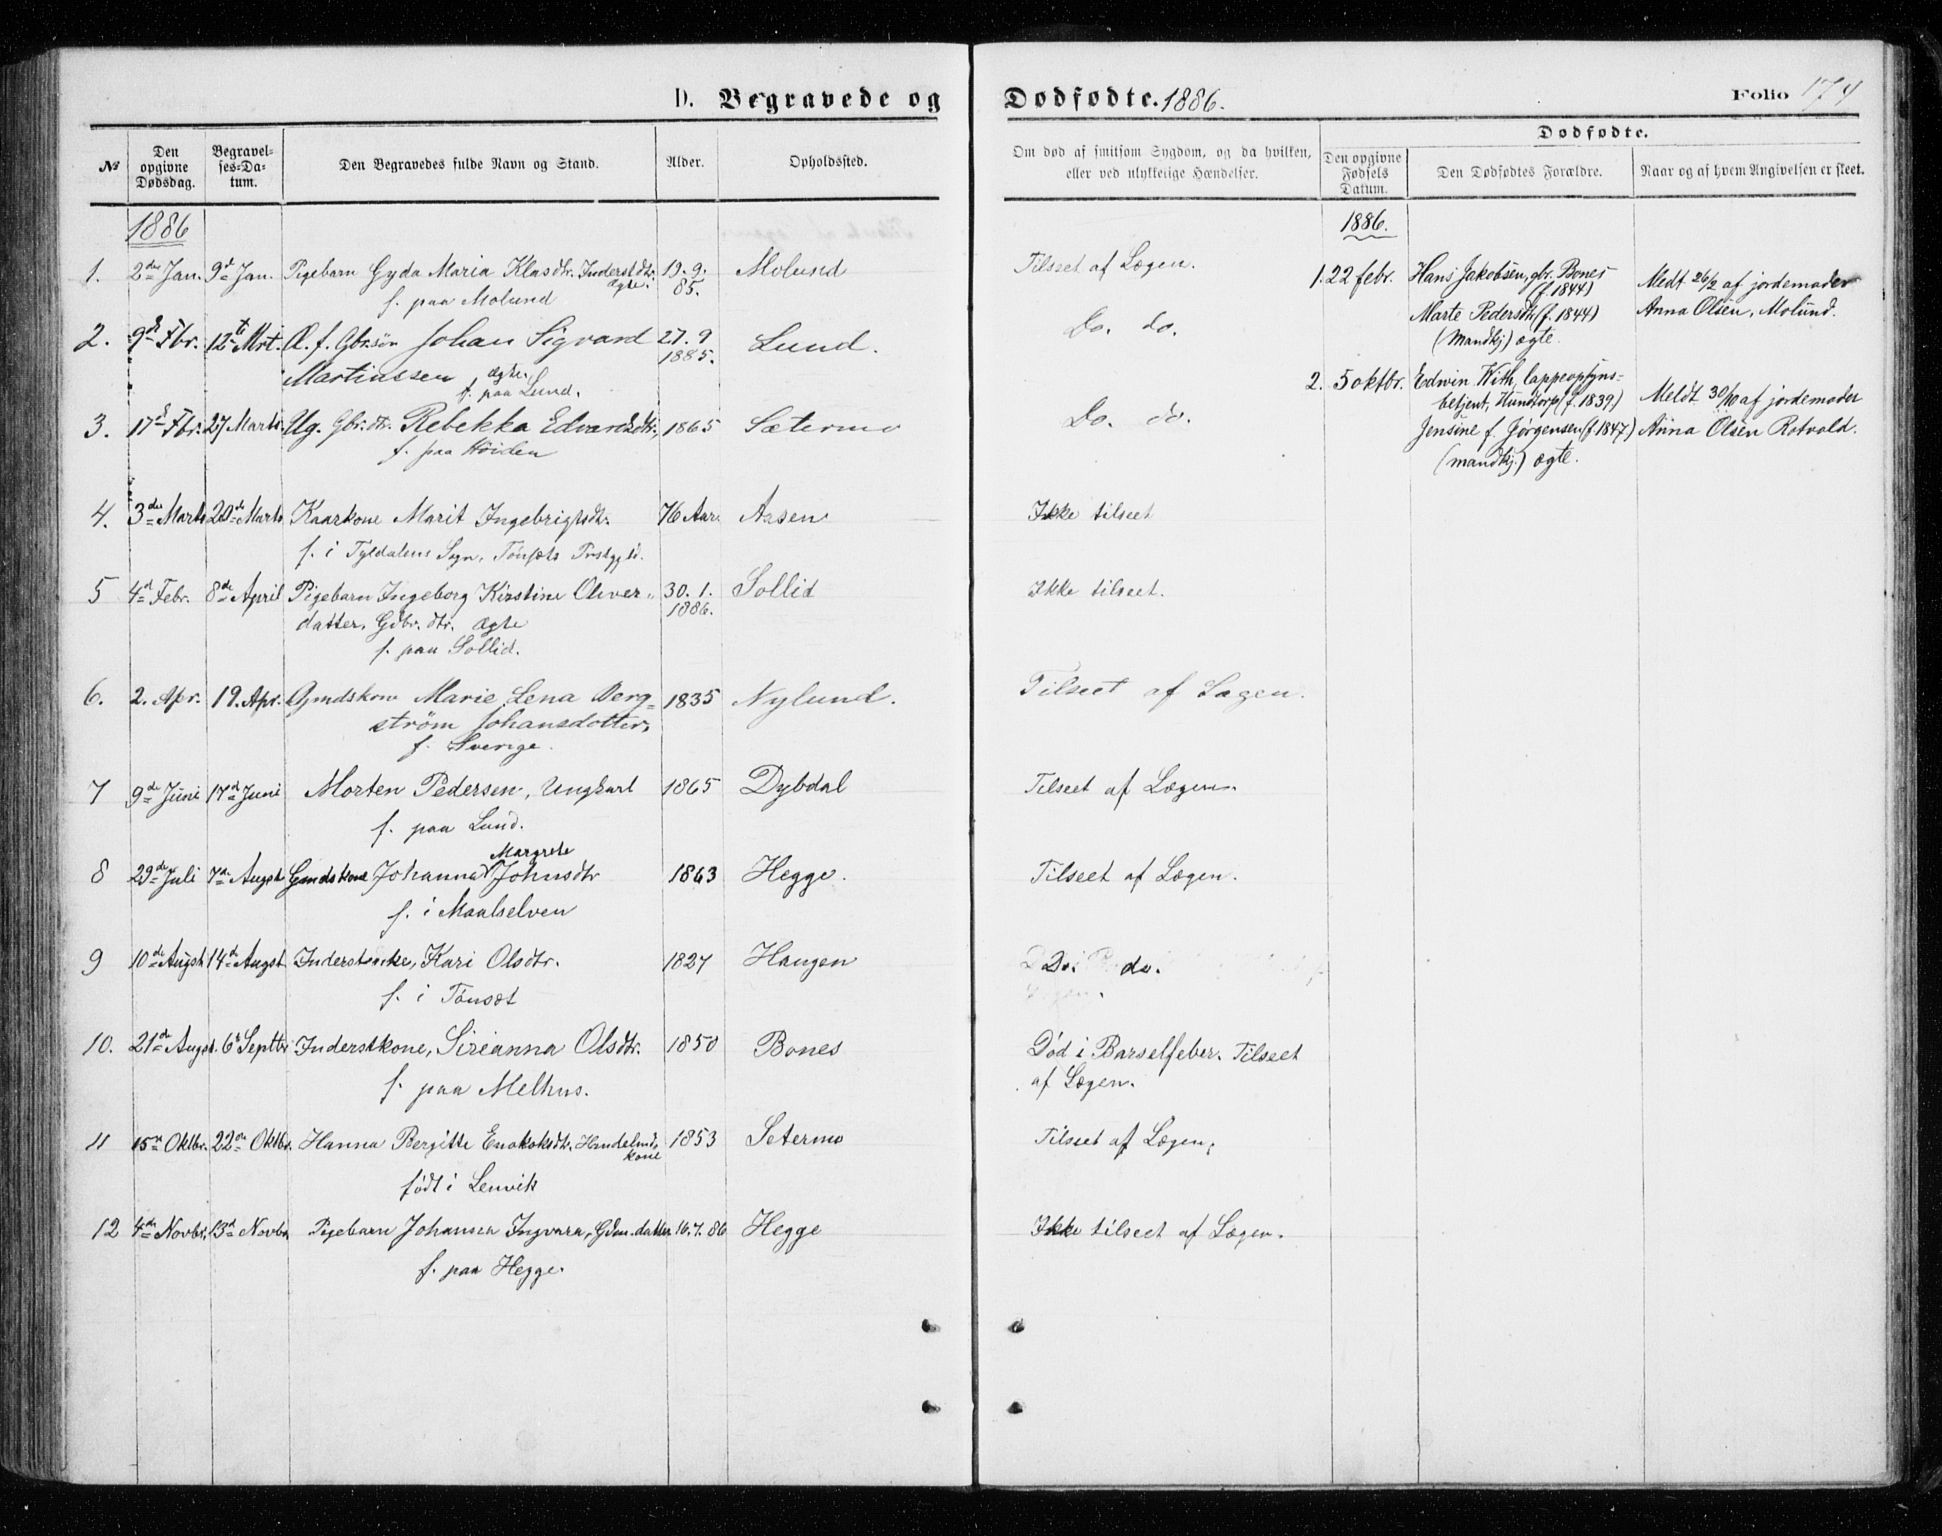 D. Begravede og Dødfødte. 1886.
Folio 174
№
Den opgivne Dødsdag.
Begravel-ses-Da-tum.
Den Begravedes fulde Navn og Stand.
Alder.
Opholdssted.
Om død af smitsom Sygdom, og da hvilken,
eller ved ulykkelige Hændelser.
Dødfødte.
Den opgivne Fødsels Datum.
Den Dødfødtes Forældre.
Naar og af hvem Angivelsen er skeet.
1886
1. 2den Jan. 9de Jan. Pigebarn Gyda Maria Klasdtr. Inderstdtr. 19.9. Molund Tilseet af Lægen.
ægte. 85.
f. paa Molund
2. 9de Fbr. 12te Mrt. Æ. f. Gbrsøn Johan Sigvard 27.9 Lund. Do. do.
1885.
Martinssen ægte.
f. paa Lund.
3. 17de Fbr. 27 Marts. Ug. Gbr.dtr. Rebekka Edvardsdtr. 1865 Sætermo Do. do.
f. paa Höiden
4. 3die Marts 20de Marts Kaarkone Marit Ingebrigtsdtr. 76 Aar Aasen Ikke tilseet
f. i Tyldalens Sogn, Tönsets Prstgjld.
5 4de Febr. 8de April Pigebarn Ingeborg Kirstine Oliver- 30. 1. Sollid Ikke tilseet.
1886.
datter, Gdbr. dtr. ægte
f. paa Sollid.
6. 2. Apr. 19. Apr. Gmdskone Marie Lena Berg- 1835 Nylund. Tilseet af Lægen.
ström Johansdotter,
f. Sverige.
7 9de Juni 17de Juni Morten Pedersen, Ungkarl 1865 Dybdal Tilseet af Lægen.
f. paa Lund.
Margrete
8 29de Juli 7de Augst Gmdskone Johanna Johnsdtr 1863 Hegge. Tilseet af Lægen.
f. i Maalselven
9 10de Augst 14de Augst Inderstenke, Kari Olsdtr. 1827 Haugen Do. do.
f. i Tönset
10. 21de Augst. 6te Septbr Inderstkone, Sirianna Olsdtr. 1850 Bones Död i Barselfeber. Tilseet
af Lægen.
f. paa Melhus.
11 15de Oktbr. 22de Oktbr. Hanna Bergitte Enokoksdtr. Handelsmd. 1853 Setermo Tilseet af Lægen.
kone
födt i Lenvik
12 4de Novbr. 13de Novbr. Pigebarn Johanna Ingvara, Gdm. datter 16.7.86 Hegge Ikke tilseet af Lægen.
f. paa Hegge.
1886.
1. 22 febr. Hans Jakobsen, gbr. Bones
(f. 1844)
Marte Pedersdtr (f. 1844)
(Mandkj.) ægte.
Medt 26/2 af jordemoder
Anna Olsen, Molund.
2. 5 oktbr. Edwin With, lappeopsyns-
betjent, Hundtorp (f. 1839)
Jensine f. Jørgensen (f. 1847)
(mandkj.) ægte.
Meldt 30/10 af jordemoder
Anna Olsen Rotvold.